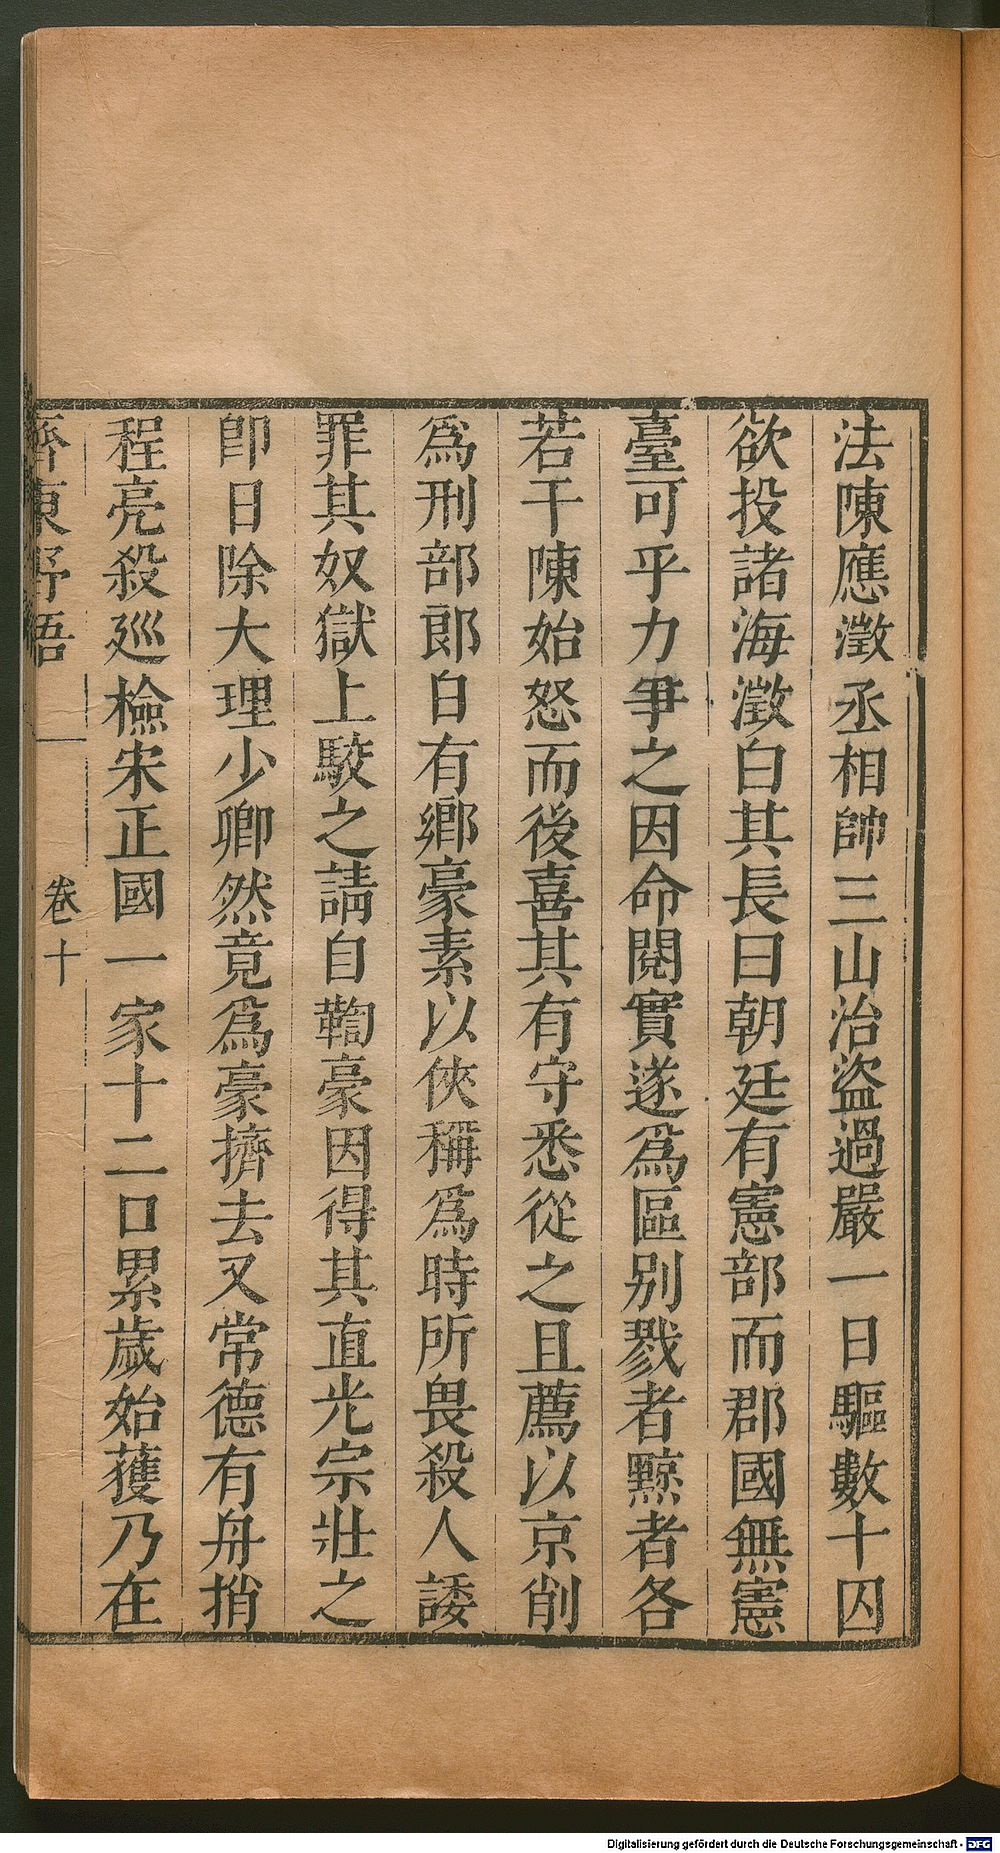 法陳應澂丞相帥三山治盜過嚴一日驅數十囚
欲投諸海澂白其長曰朝廷有憲部而郡國無憲
臺可乎力爭之因命閱實遂爲區别戮者黥者各
若干陳始怒而後喜其有守悉從之且薦以京削
爲刑部郎白有鄉豪素以俠稱爲時所畏殺人諉
罪其奴獄上駮之請自鞫豪因得其直光宗壯之
卽日除大理少卿然竟爲豪擠去又常德有舟捎
程亮殺廵檢宋正國一家十二口累歲始獲乃在
齊東野語 卷十
Digitalisierung gefördert durch die Deutsche Forschungsgemeinschaft - DFG